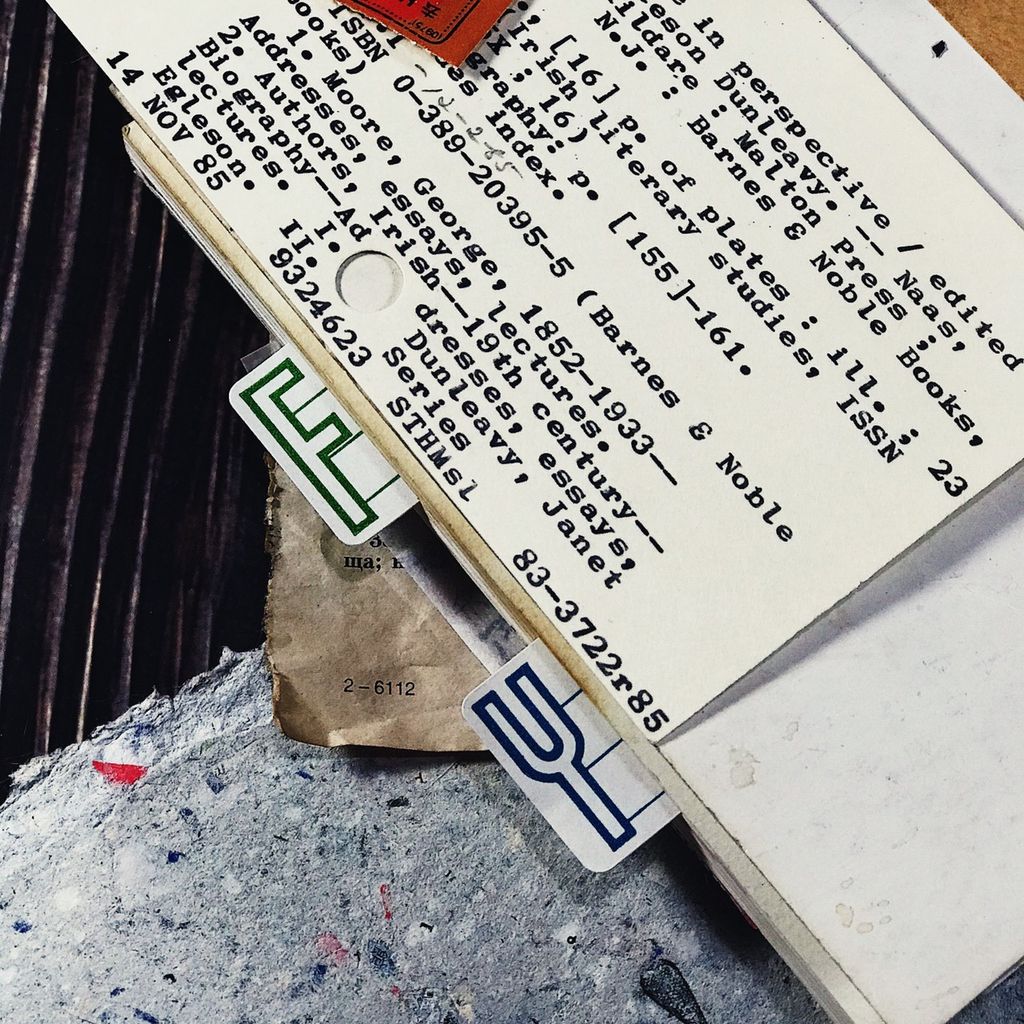 e in perspective / edited
eson Dunleavy. -- Naas,
ildare : Malton Press ;
N.J. : Barnes & Noble Books,
[16] p. of plates : ill. ; 23
irish literary studies, ISSN
; 16)
graphy: p. [155]-161.
es index.
ISBN 0-389-20395-5 (Barnes & Noble
ooks)
1. Moore, George, 1852-1933--
Addresses, essays, lectures.
2. Authors, Irish--19th century--
Biography--Ad dresses, essays,
lectures. I. Dunleavy, Janet
Egleson. II. Series
14 NOV 85 9324623 STHMsl 83-3722r85
12-2-85
(10975)
F
Y
ща; к
2-6112